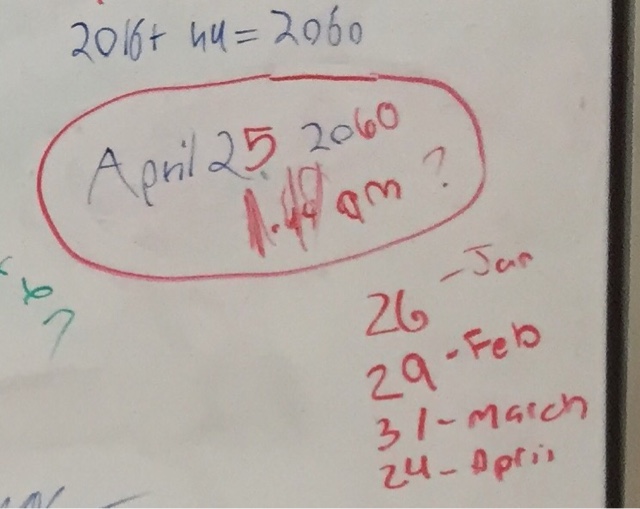 2016+ 44 = 2060
April 25 2060
am ?
26 - Jan
29 - Feb
31 - March
24 - April